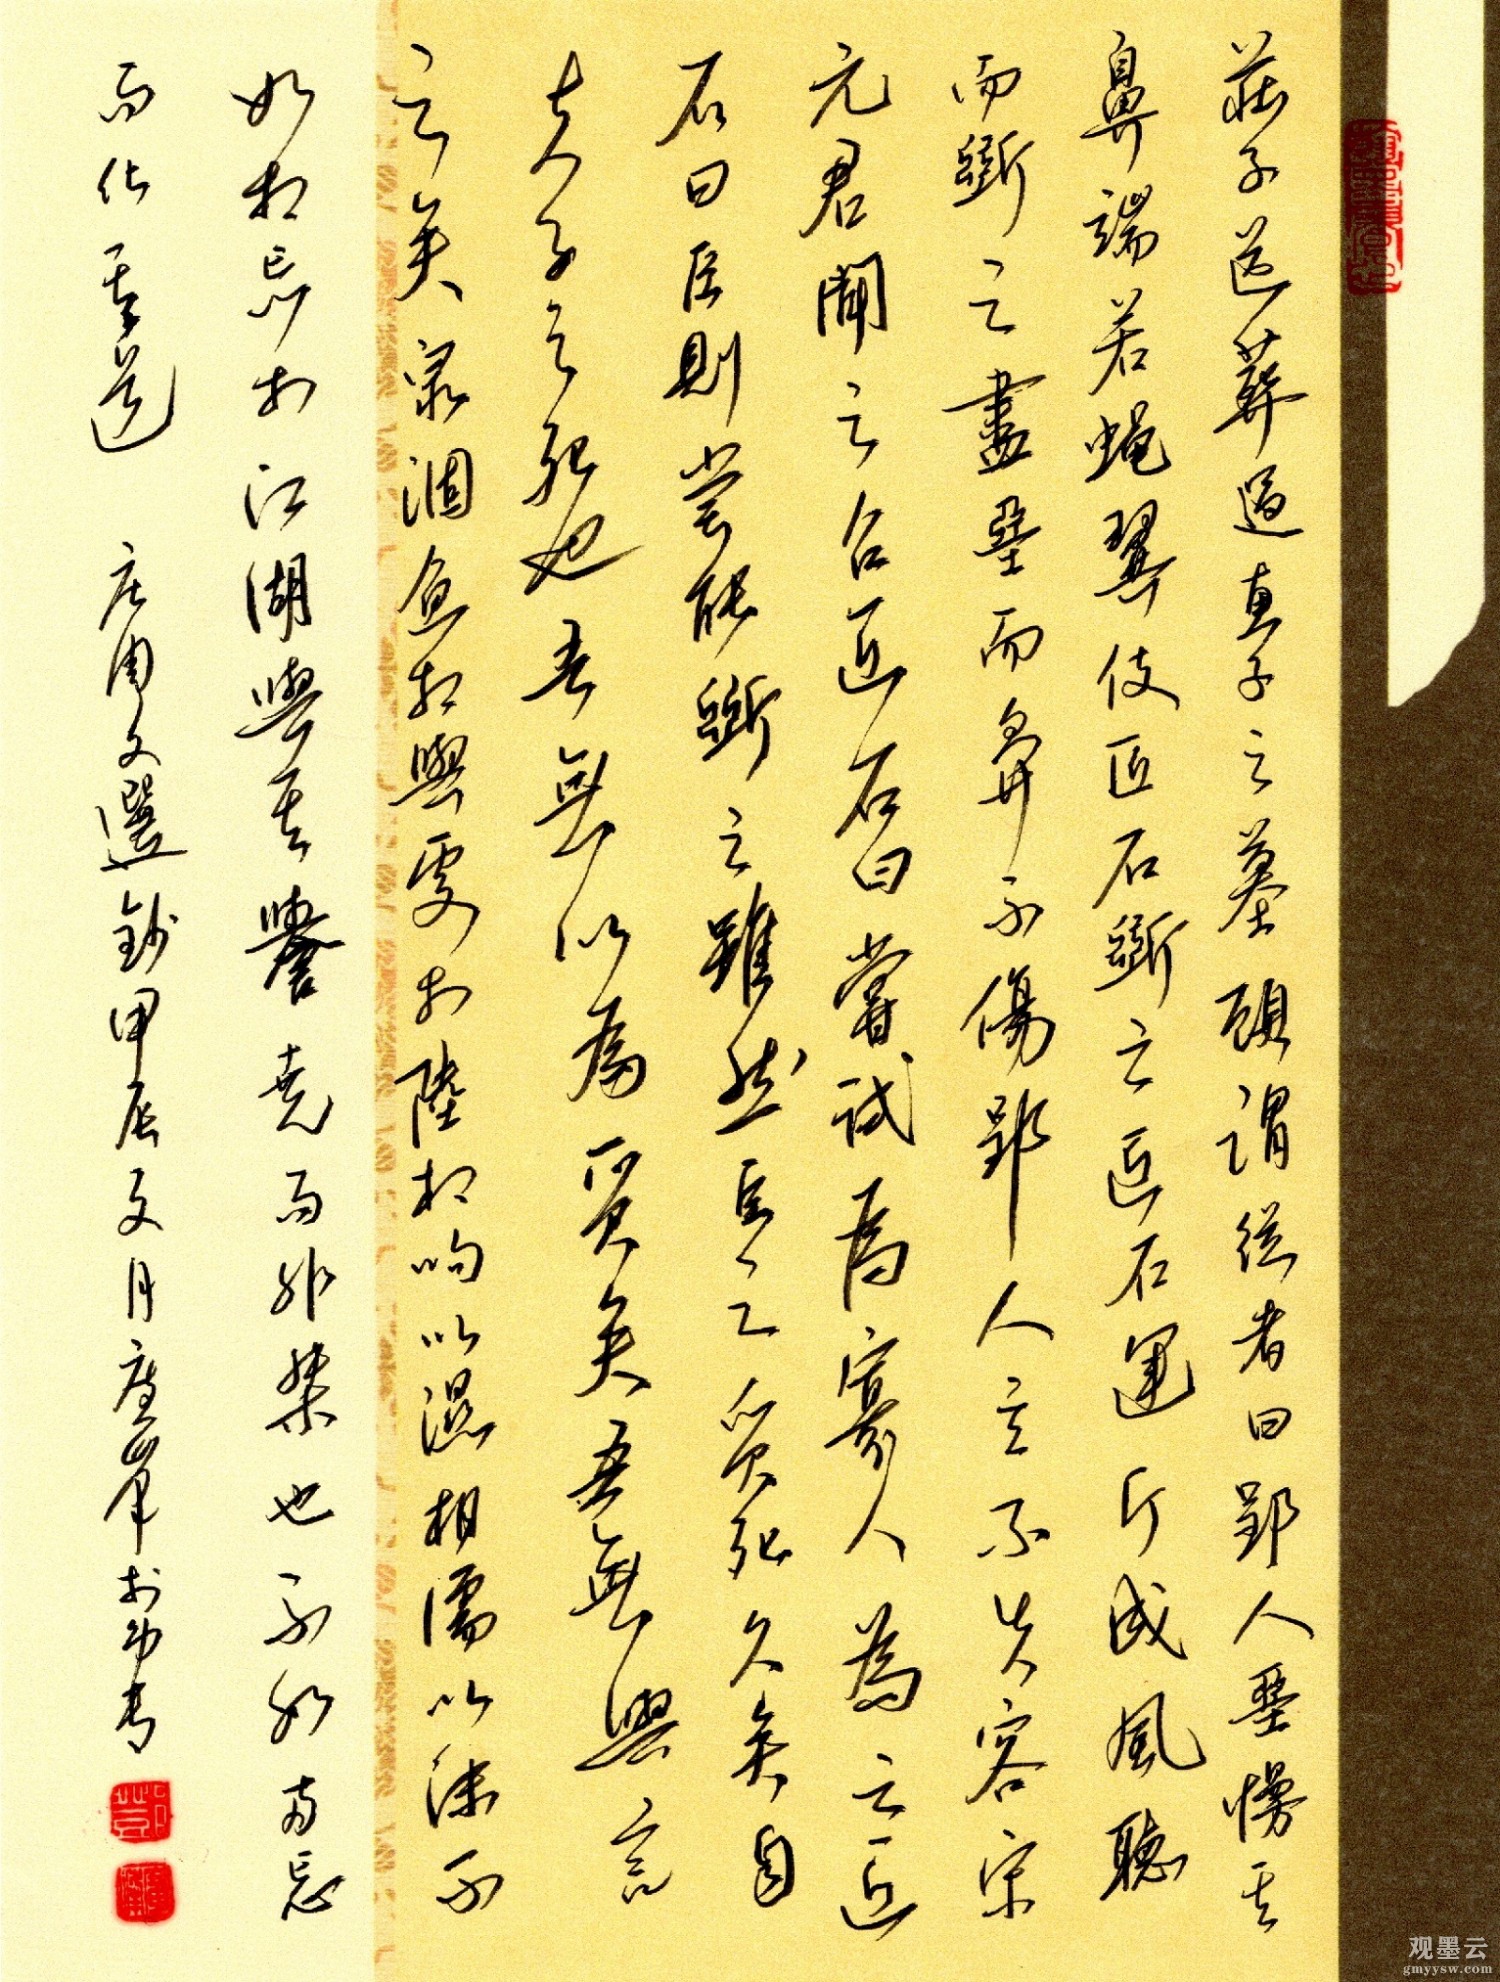 莊子送葬過惠子之墓顧謂從者曰郢人堊慢其
鼻端若蠅翼使匠石斲之匠石運斤成風聽
而斲之盡堊而鼻不傷郢人立不失容宋
元君聞之召匠石曰嘗試為寡人為之匠
石曰臣則嘗能斲之雖然臣之質死久矣自
夫子之死也吾無以為質矣吾無與言
之矣泉涸魚相與處於陸相呴以濕相濡以沫不
如相忘於江湖與其譽堯而非桀也不如兩忘
而化其道 庄周文選鈔甲辰
观墨云
gmyysw.com